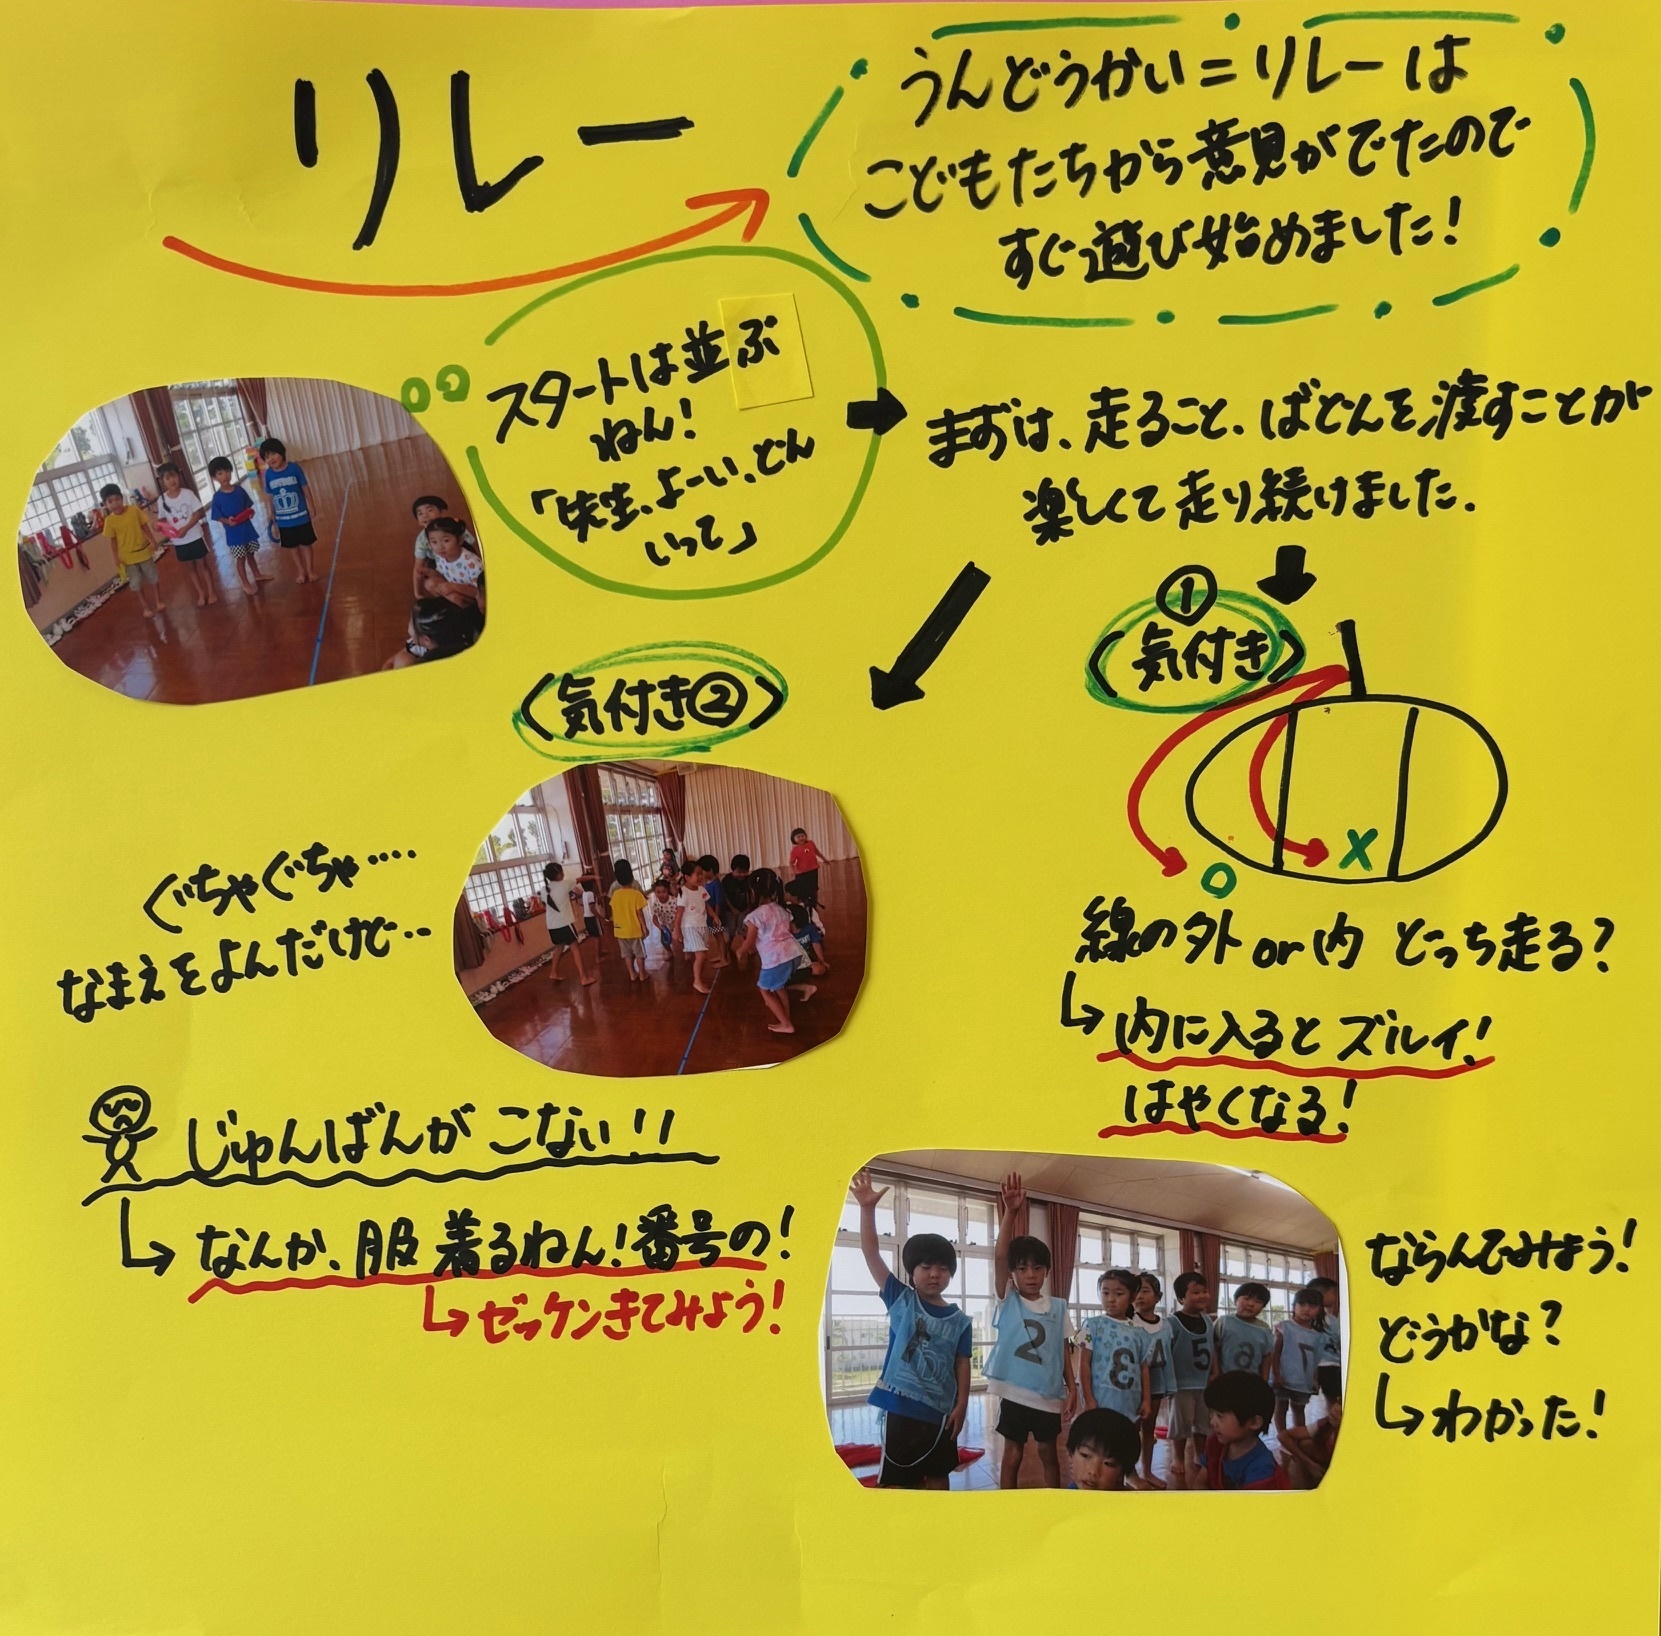 リレー
うんどうかい=リレーは
こどもたちから意見がでたので
すぐ遊び始めました!
スタートは並ぶ
ねん!
「先生、よーい、どん
いって」
まずは、走ること、ばとんを渡すことが
楽しくて走り続けました.
①
〈気付き〉
O
X
線の外or内 どっち走る?
内に入るとズルイ!
はやくなる!
〈気付き②〉
ぐちゃぐちゃ....
なまえをよんだけど..
じゅんばんがこない!!
なんか、服着るねん!番号の!
ゼッケンきてみよう!
2
3
4
5
6
7
ならんでみよう!
どうかな?
わかった!